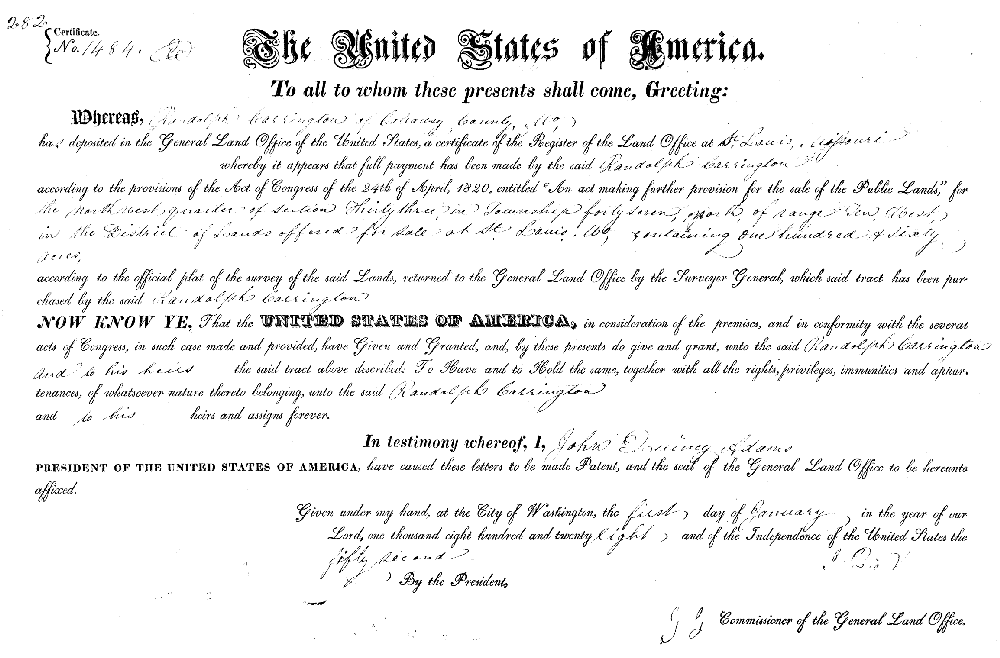 282.
Certificate.
No. 1484.
The United States of America.
To all to whom these presents shall come, Greeting:
Whereas, Randolph Carrington of County, Mo,
has deposited in the General Land Office of the United States, a certificate of the Register of the Land Office at St Louis, Missouri
whereby it appears that full payment has been made by the said Randolph Carrington
according to the provisions of the Act of Congress of the 24th of April, 1820, entitled "An act making further provision for the sale of the Public Lands," for
the north west quarter of section Thirty three in Township forty seven, north, of range Ten, West,
in the District of Lands offered for sale at St Louis, Mo, containing One hundred & Sixty
Acres,
according to the official plat of the survey of the said Lands, returned to the General Land Office by the Surveyor General, which said tract has been pur-
chased by the said Randolph Carrington
NOW KNOW YE, That the UNITED STATES OF AMERICA, in consideration of the premises, and in conformity with the several
acts of Congress, in such case made and provided, have Given and Granted, and, by these presents do give and grant, unto the said Randolph Carrington
and to his heirs the said tract above described: To Have and to Hold the same, together with all the rights, privileges, immunities and appur-
tenances, of whatsoever nature thereto belonging, unto the said Randolph Carrington
and to his heirs and assigns forever.
In testimony whereof, I, John Quincy Adams
PRESIDENT OF THE UNITED STATES OF AMERICA, have caused these letters to be made Patent, and the seal of the General Land Office to be hereunto
affixed.
Given under my hand, at the City of Washington, the first day of January in the year of our
Lord, one thousand eight hundred and twenty eight and of the Independence of the United States the
fifty second
By the President,
Commissioner of the General Land Office.